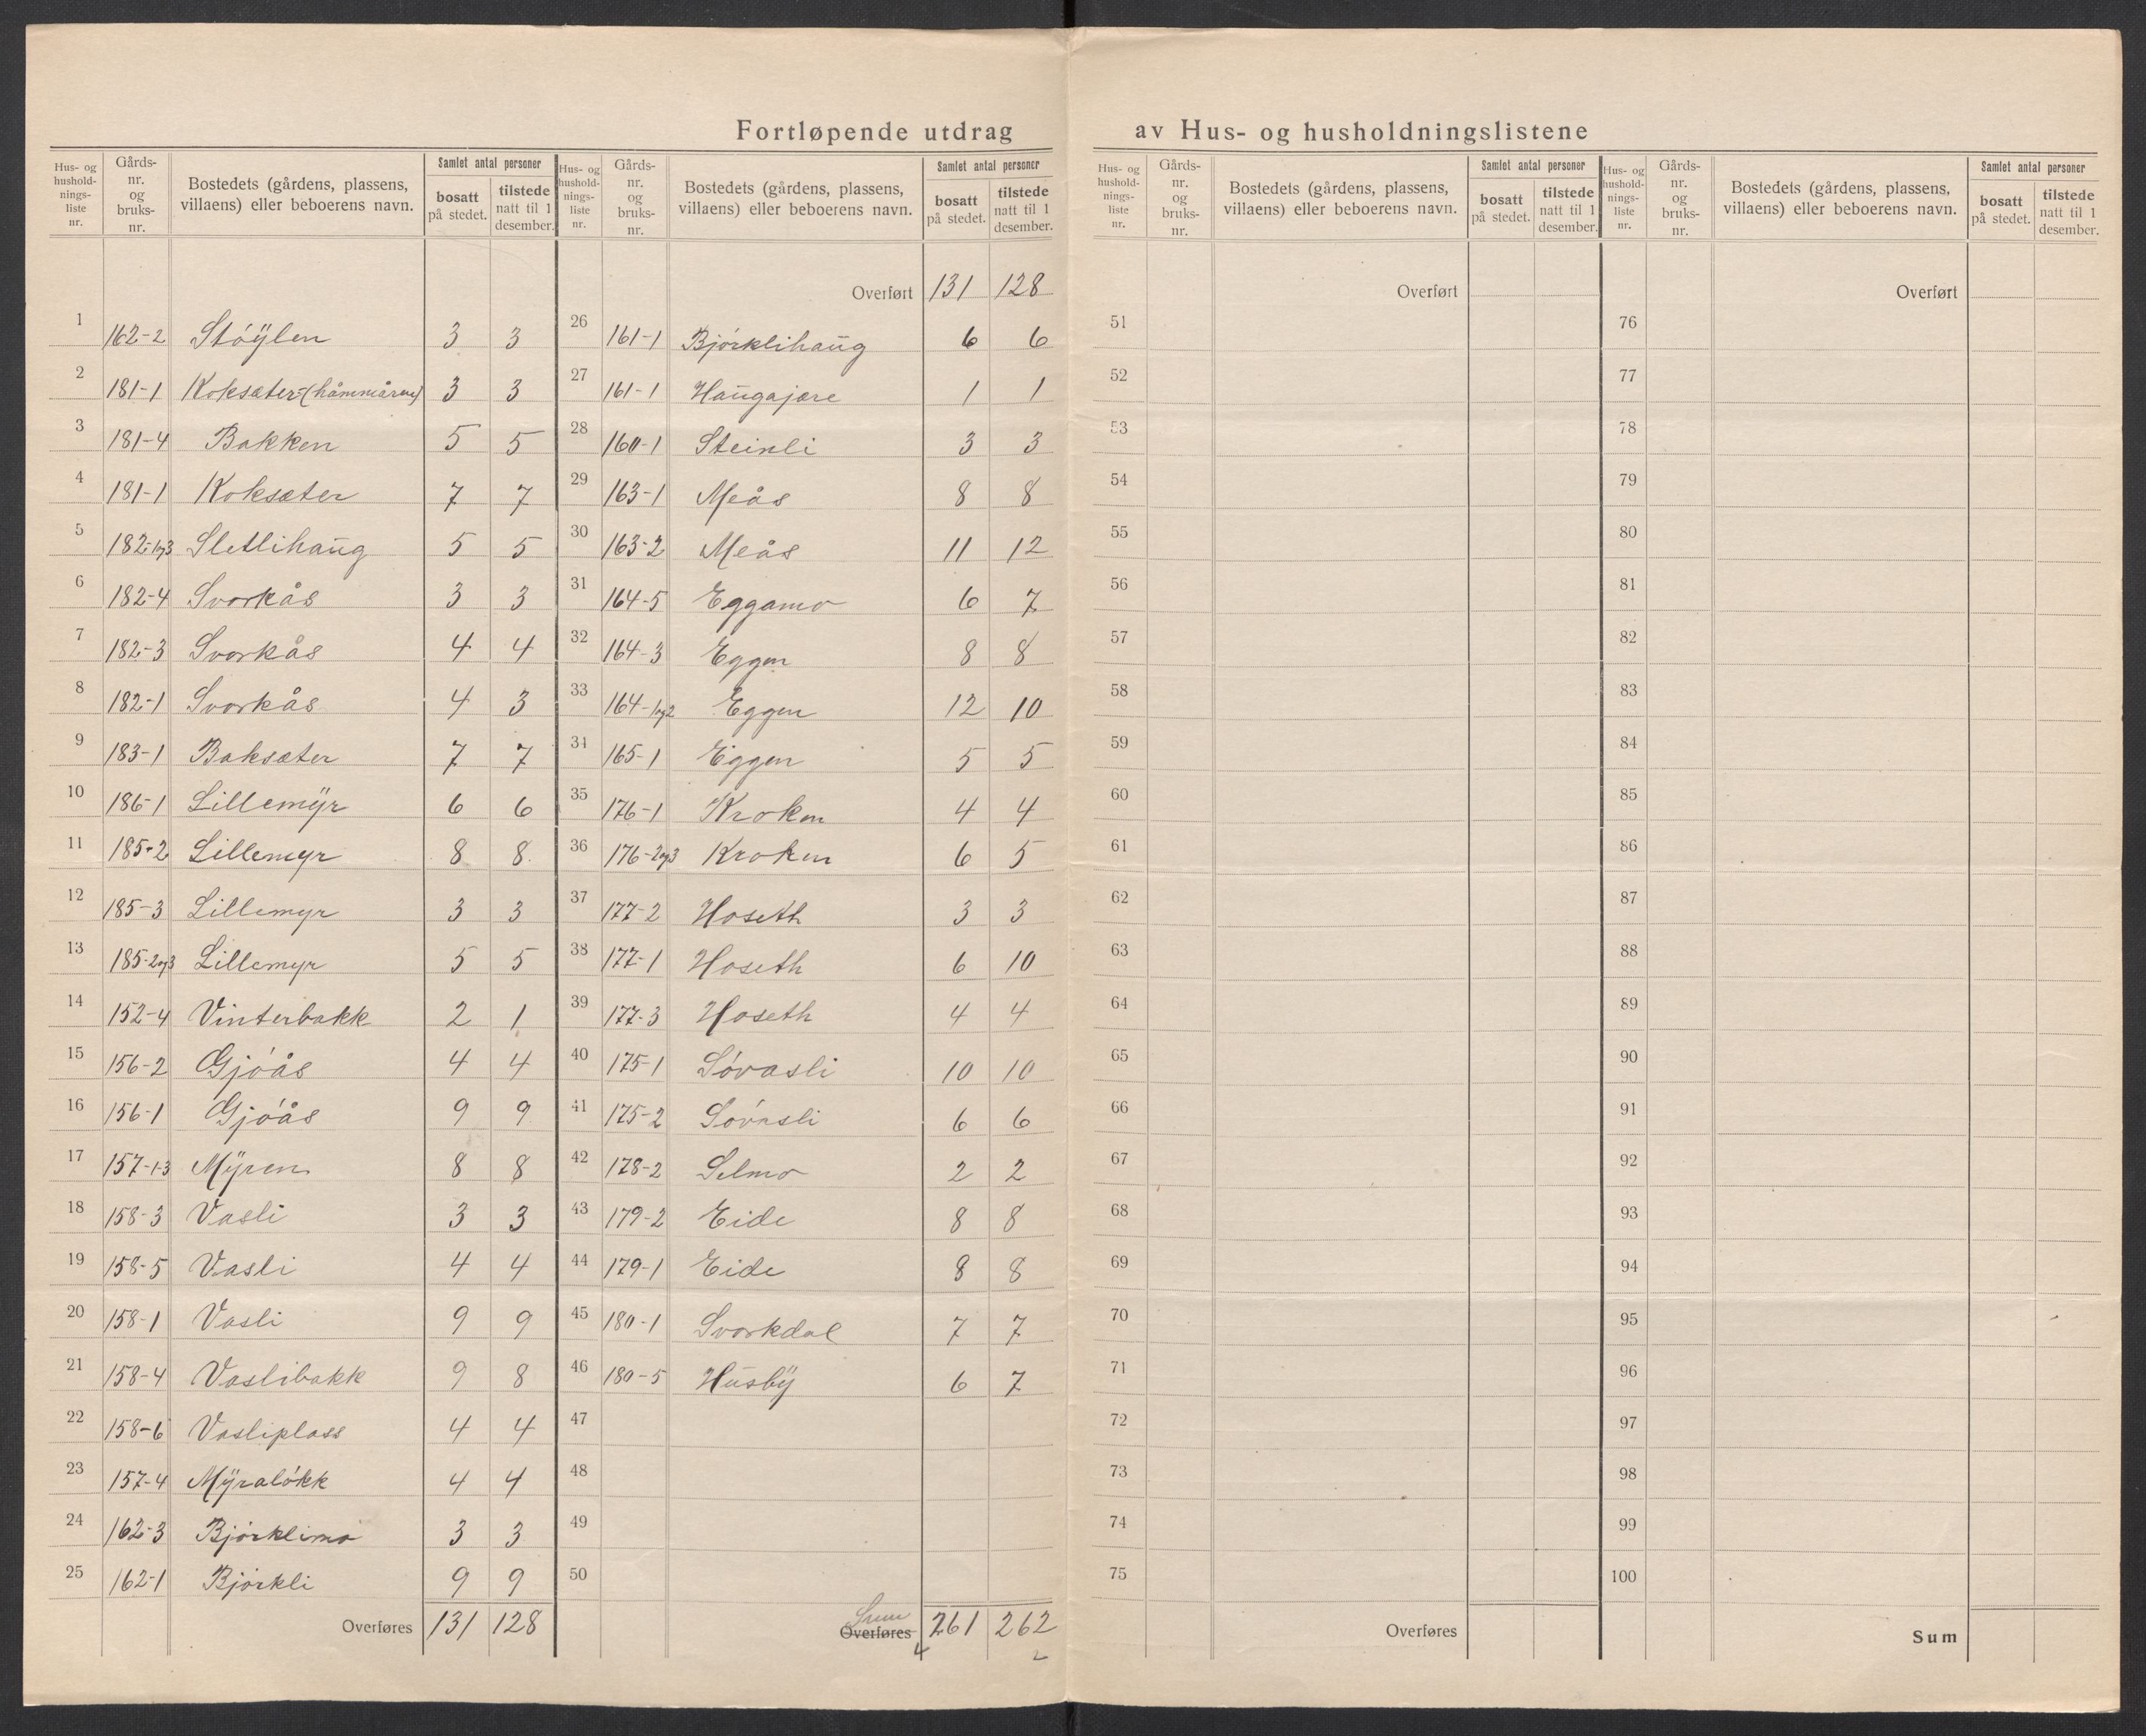 Fortløpende utdrag av Hus- og husholdningslistene
Hus- og husholdnings-liste nr. | Gårds-nr. og bruks-nr. | Bostedets (gårdens, plassens, villaens) eller beboerens navn. | Samlet antal personer bosatt på stedet. | tilstede natt til 1 desember.
1 162-2 Støÿlen 3 3
2 181-1 Koksæter-(håmmåren) 3 3
3 181-4 Bakken 5 5
4 181-1 Koksæter 7 7
5 182-1og3 Sletlihaug 5 5
6 182-4 Svorkås 3 3
7 182-3 Svorkås 4 4
8 182-1 Svorkås 4 3
9 183-1 Baksæter 7 7
10 186-1 Lillemÿr 6 6
11 185-2 Lillemyr 8 8
12 185-3 Lillemyr 3 3
13 185-2og3 Lillemyr 5 5
14 152-4 Vinterbakk 2 1
15 156-2 Gjóås 4 4
16 156-1 Gjóås 9 9
17 157-1-3 Mÿren 8 8
18 158-3 Vasli 3 3
19 158-5 Vasli 4 4
20 158-1 Vasli 9 9
21 158-4 Vaslibakk 9 8
22 158-6 Vasliplass 4 4
23 157-4 Mÿraløkk 4 4
24 162-3 Bjórklimo 3 3
25 162-1 Bjórkli 9 9
Overføres 131 128
Hus- og husholdnings-liste nr. | Gårds-nr. og bruks-nr. | Bostedets (gårdens, plassens, villaens) eller beboerens navn. | Samlet antal personer bosatt på stedet. | tilstede natt til 1 desember.
Overført 131 128
26 161-1 Bjórklihaug 6 6
27 161-1 Haugajære 1 1
28 160-1 Steinli 3 3
29 163-1 Meås 8 8
30 163-2 Meås 11 12
31 164-5 Eggamo 6 7
32 164-3 Eggen 8 8
33 164-1og2 Eggen 12 10
34 165-1 Eggen 5 5
35 176-1 Kroken 4 4
36 176-2og3 Kroken 6 5
37 177-2 Hoseth 3 3
38 177-1 Hoseth 6 10
39 177-3 Hoseth 4 4
40 175-1 Sóvasli 10 10
41 175-2 Sóvasli 6 6
42 178-2 Selmo 2 2
43 179-2 Eide 8 8
44 179-1 Eide 8 8
45 180-1 Svorkdal 7 7
46 180-5 Husbÿ 6 7
47
48
49
50
Sum
Overføres 261 262
4 2
Hus- og husholdnings-liste nr. | Gårds-nr. og bruks-nr. | Bostedets (gårdens, plassens, villaens) eller beboerens navn. | Samlet antal personer bosatt på stedet. | tilstede natt til 1 desember.
Overført
51
52
53
54
55
56
57
58
59
60
61
62
63
64
65
66
67
68
69
70
71
72
73
74
75
Overføres
Hus- og husholdnings-liste nr. | Gårds-nr. og bruks-nr. | Bostedets (gårdens, plassens, villaens) eller beboerens navn. | Samlet antal personer bosatt på stedet. | tilstede natt til 1 desember.
Overført
76
77
78
79
80
81
82
83
84
85
86
87
88
89
90
91
92
93
94
95
96
97
98
99
100
Sum